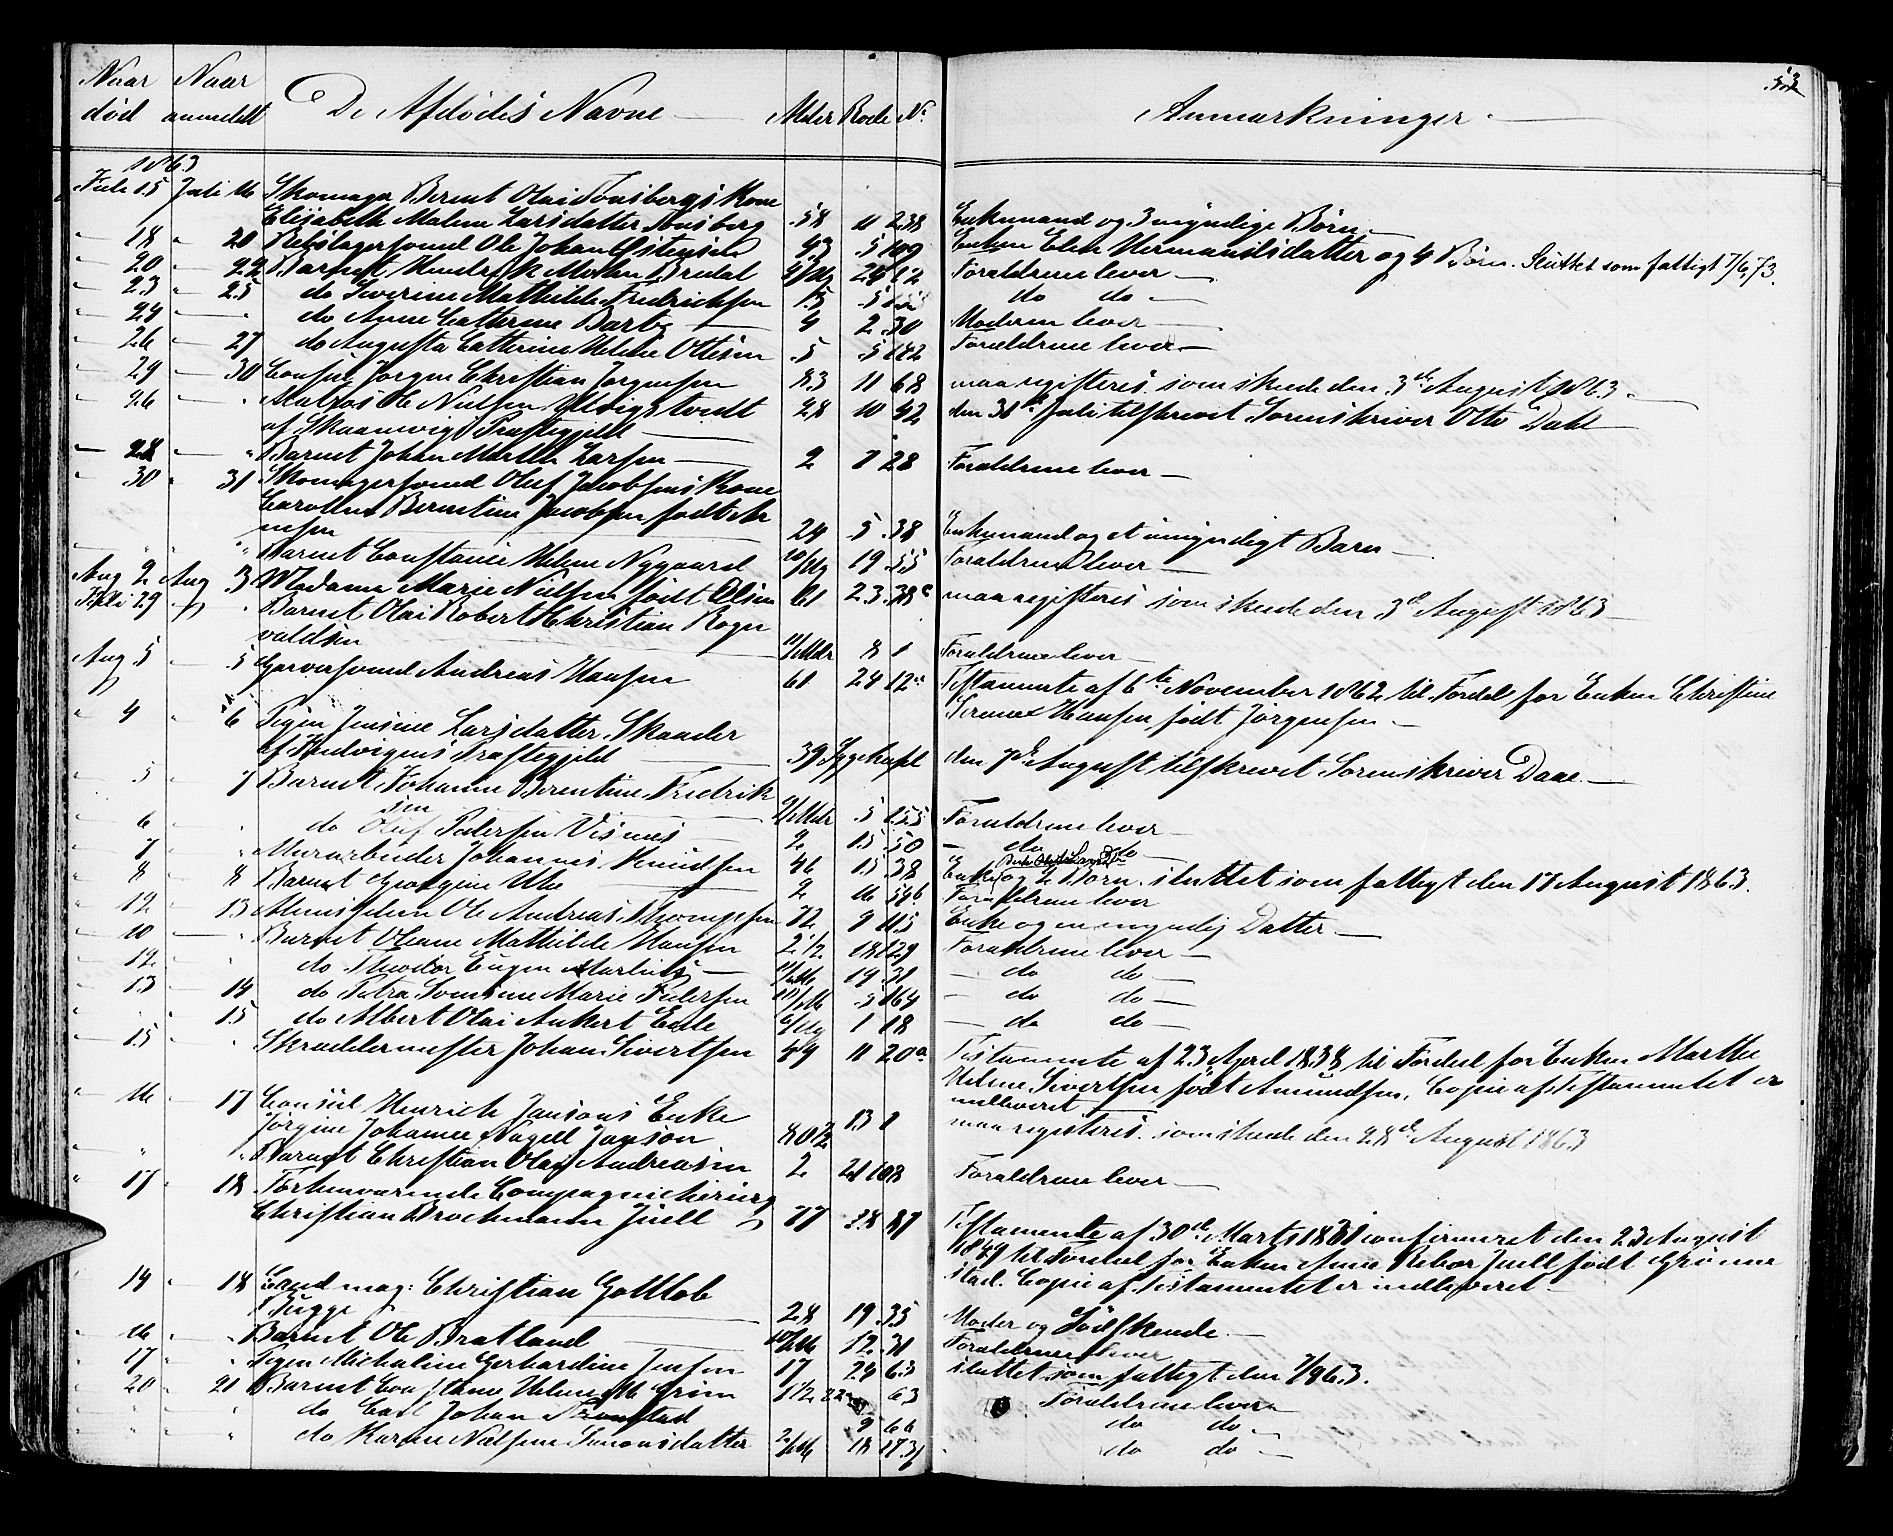 53
Naar død Naar anmeldt De Afdødes Navne Alder Rode No Anmærkninger
1863
Juli 15 Juli 16 Skomager Bernt Olai Tønsbergs Kone
Elisabeth Malene Larsdatter Tønsberg 58 11 238 Enkemand og 3 myndige Børn
" 18 " 20 Rebslagersvend Ole Johan Østensen 43 5 109 Enken Elen Hermansdatter og 4 Børn. Sluttet som fattigt 7/6 73.
" 20 " 22 Barnet Hendrik Mohn Bredal 24 12 Forældrene lever
" 23 " 25 do Severine Mathilde Fredriksen 15 5 do do
" 24 " " do Anne Cathrine Barby 4 2 30 Moderen lever
" 26 " 27 do Augusta Cathrine Helene Ottesen 5 5 142 Forældrene lever
" 29 " 30 Consul Jørgen Christian Jørgensen 83 11 68 maa registeres som skede den 3de August 1863.
" 26 " " Matros Ole Nielsen
af Skaanevigs Præstegjeld 28 10 42 den 31te Juli tilskrevet Sorenskriver Otto Dahl
" 28 " " Barnet Johan Martin Larsen 2 7 28 Forældrene lever
" 30 " 31 Skomagersvend Oluf Jacobsens Kone
Caroline Berentine Jacobsen født
24 5 38 Enkemand og et umyndigt Barn
" " " Barnet Constance Helene Nygaard 19 55 Forældrene lever
Aug 2 Aug 3 Madame Marie Nielsen født Olsen 61 23 38c maa registeres som skede den 3de August 1863
Juli 29 " " Barnet Olai Robert Christian Rogn
valdsen 11/Mdr 8 1 Forældrene lever
Aug 5 " 5 Garversvend Andreas Hansen 61 24 12a Testamente af 6te November 1862 til Fordel for Enken Christine
Hansen født Jørgensen
" 4 " 6 Pigen Jensine Larsdatter Skaader
af Hindvigens Præstegjeld 39 Sygehuset den 7de August tilskrevet Sorenskriver Daae.
" 5 " 7 Barnet Johanne Berentine Fredrik
sen 9/Mdr 5 155 Forældrene lever
" 6 " " do Oluf Pedersen Visnes 2 15 50 do do
" 7 " " Murarbeider Johannes Knudsen 46 15 38 Enke og 2 Børn. sluttet som fattigt den 17 August 1863.
" 8 " 8 Barnet Georgine Uhe 2 16 54b Forældrene lever
" 12 " 13 Almislem Ole Andreas Thompsen 72 9 115 Enke og en myndig Datter
" 10 " " Barnet Oleane Mathilde Hansen 2 1/2 18 129 Forældrene lever
" 12 " " do Theodor Eugen Martens 19 31 do do
" 13 " 14 do Petra Lovisine Marie Pedersen 5 164 do do
" " " 15 do Albert Olai Ankert Eide 1 18 do do
" 15 " " Skræddermester Johan Sivertsen 49 11 20a Testamente af 23 April 1838 til Fordel for Enken Marthe
Helene Sivertsen født Amundsen. Copie af Testamentet er
indleveret
" 16 " 17 Consul Henrich Jansons Enke
Jørgine Johanne Nagell Janson 80 1/2 13 1 maa registeres som skede den 28de August 1863
" " " " Barnet Christian Olai Andreasen 2 21 108 Forældrene lever
" 17 " 18 Forhenværende Compagniechirurg
Christian Brochmann Juell 77 28 87 Testamente af 30te Marts 1831 confirmeret den 23 August
1849 til Fordel for Enken Anne Rebor Juell født Grønne
stad. Copie af Testamentet er indleveret
" 14 " 18 Cand mag: Christian Gottlob
Bugge 28 19 35 Moder og Sødskende.
" 16 " " Barnet Ole Bratland 12 31 Forældrene lever
" 17 " " Pigen Michaline Gerhardine Jensen 17 24 63 sluttet som fattigt den 7/9 63.
" 20 " 21 Barnet Constance Helene M Grim 1 1/2 22 63 Forældrene lever
" " " " do Carl Johan Tronstad 9 66 do do
" " " " do Karen Nielsine Simonsdatter 18 do do